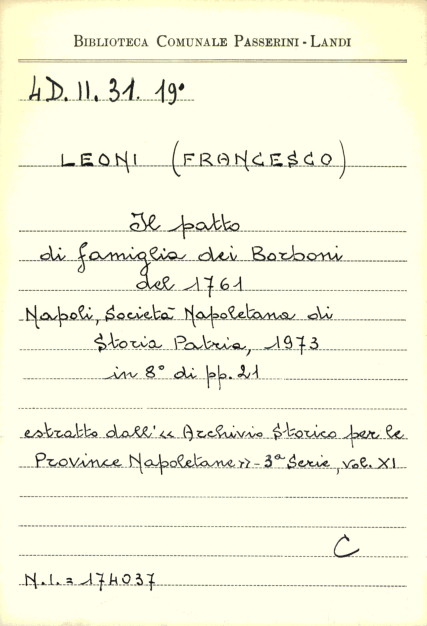 BIBLIOTECA COMUNALE PASSERINI-LANDI
4D. II. 31. 19°
LEONI (FRANCESCO)
Il patto
di famiglia dei Borboni
del 1761
Napoli, Società Napoletana di
Storia Patria, 1973
in 8° di pp. 21
estratto dall'« Archivio Storico per le
Province Napoletane » - 3ª Serie, vol. XI
C
N.I. = 174037